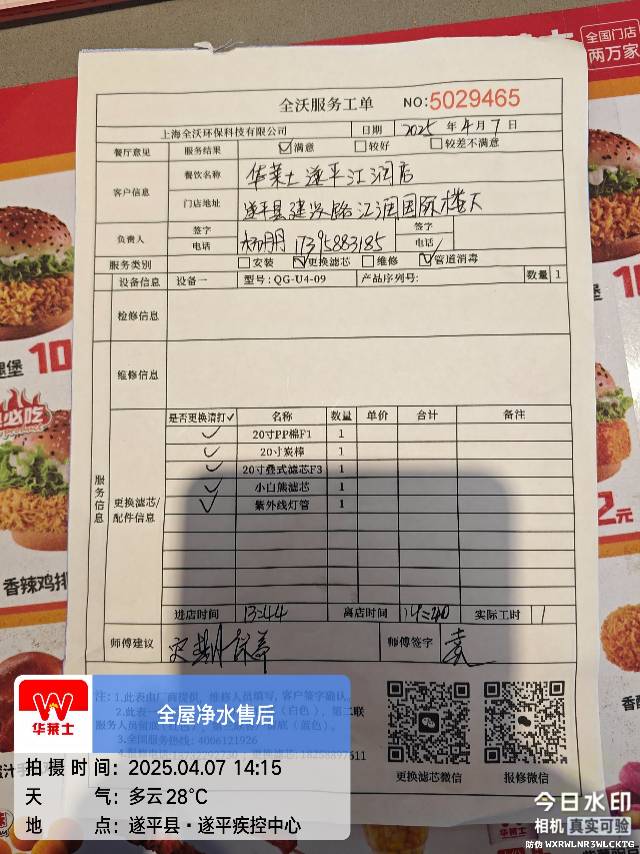 全国门店
两万家
全沃服务工单 NO:5029465
上海全沃环保科技有限公司 日期 2025 年 4 月 7 日
餐厅意见 服务结果 ☑满意 □较好 □较差不满意
客户信息 餐饮名称 华莱士遂平江润店
门店地址 遂平县建设路江润国际楼下
负责人 签字 杨朋 签字
电话 17395883185 电话
服务类别 □安装 ☑更换滤芯 □维修 ☑管道消毒
设备信息 设备一 型号:QG-U4-09 产品序列号: 数量 1
检修信息
维修信息
服务信息
更换滤芯/配件信息
是否更换请打✓ 名称 数量 单价 合计 备注
✓ 20寸PP棉F1 1
✓ 20寸炭棒 1
✓ 20寸叠式滤芯F3 1
✓ 小白熊滤芯 1
✓ 紫外线灯管 1
进店时间 13:44 离店时间 14:40 实际工时 1
师傅建议 定期保养 师傅签字 袁
注:1.此表由厂商提供,维修人员填写,客户签字确认。
3.全国服务热线:4006121926
更换滤芯微信 报修微信
堡 10
必吃
香辣鸡排
2元
华莱士
全屋净水售后
拍摄时间:2025.04.07 14:15
天 气:多云28℃
地 点:遂平县·遂平疾控中心
今日水印
相机 真实可验
防伪 WXRWLNR3WLCKTG